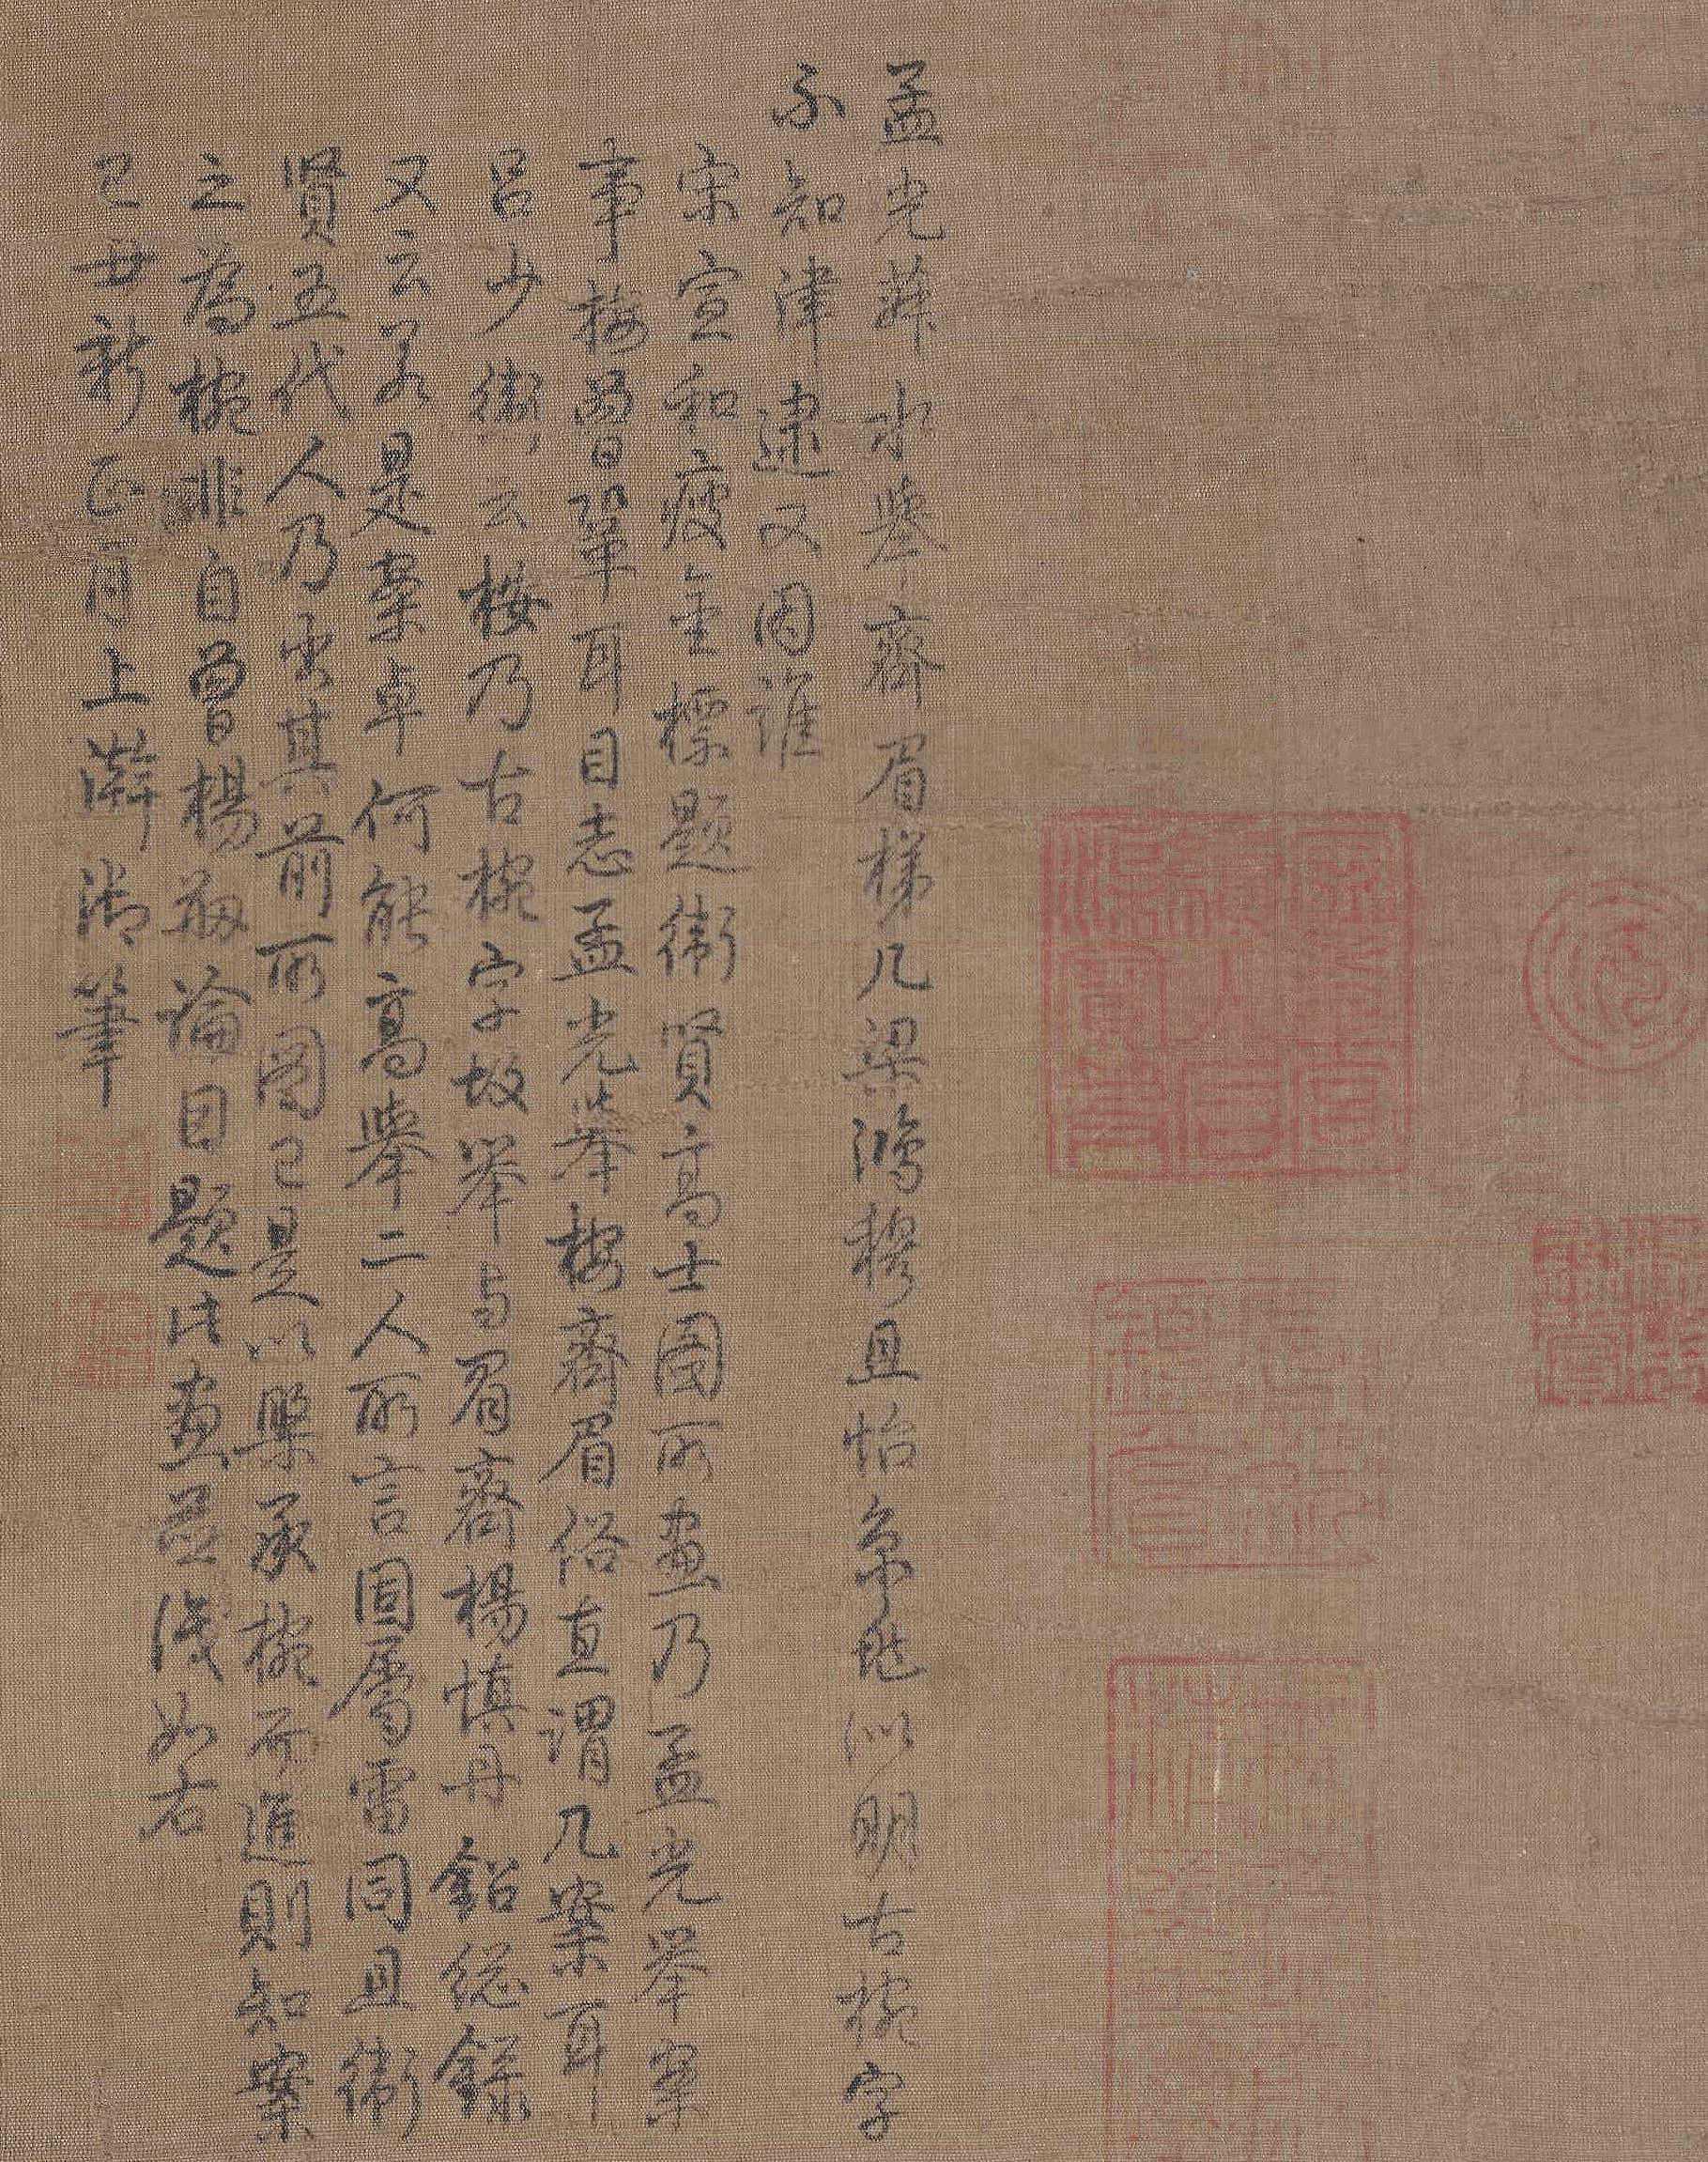 孟光水舉齊眉梯几梁鴻穆且怡以明古椀字
不知津逮又因誰
宋宣和瘦金標題衛賢高士圖所畫乃孟光舉案
事按曾鞏耳目志孟光舉桉齊眉俗直謂几案耳
呂少衛云桉乃古椀字故舉与眉齊楊慎丹鉛総錄
又云若是案卓何能高舉二人所言固屬雷同且衛
賢五代人乃其前所圖已是以槃承椀而進則知案
之為椀非自曾楊剏論因題此畫並識如右
己丑新正月上澣御筆